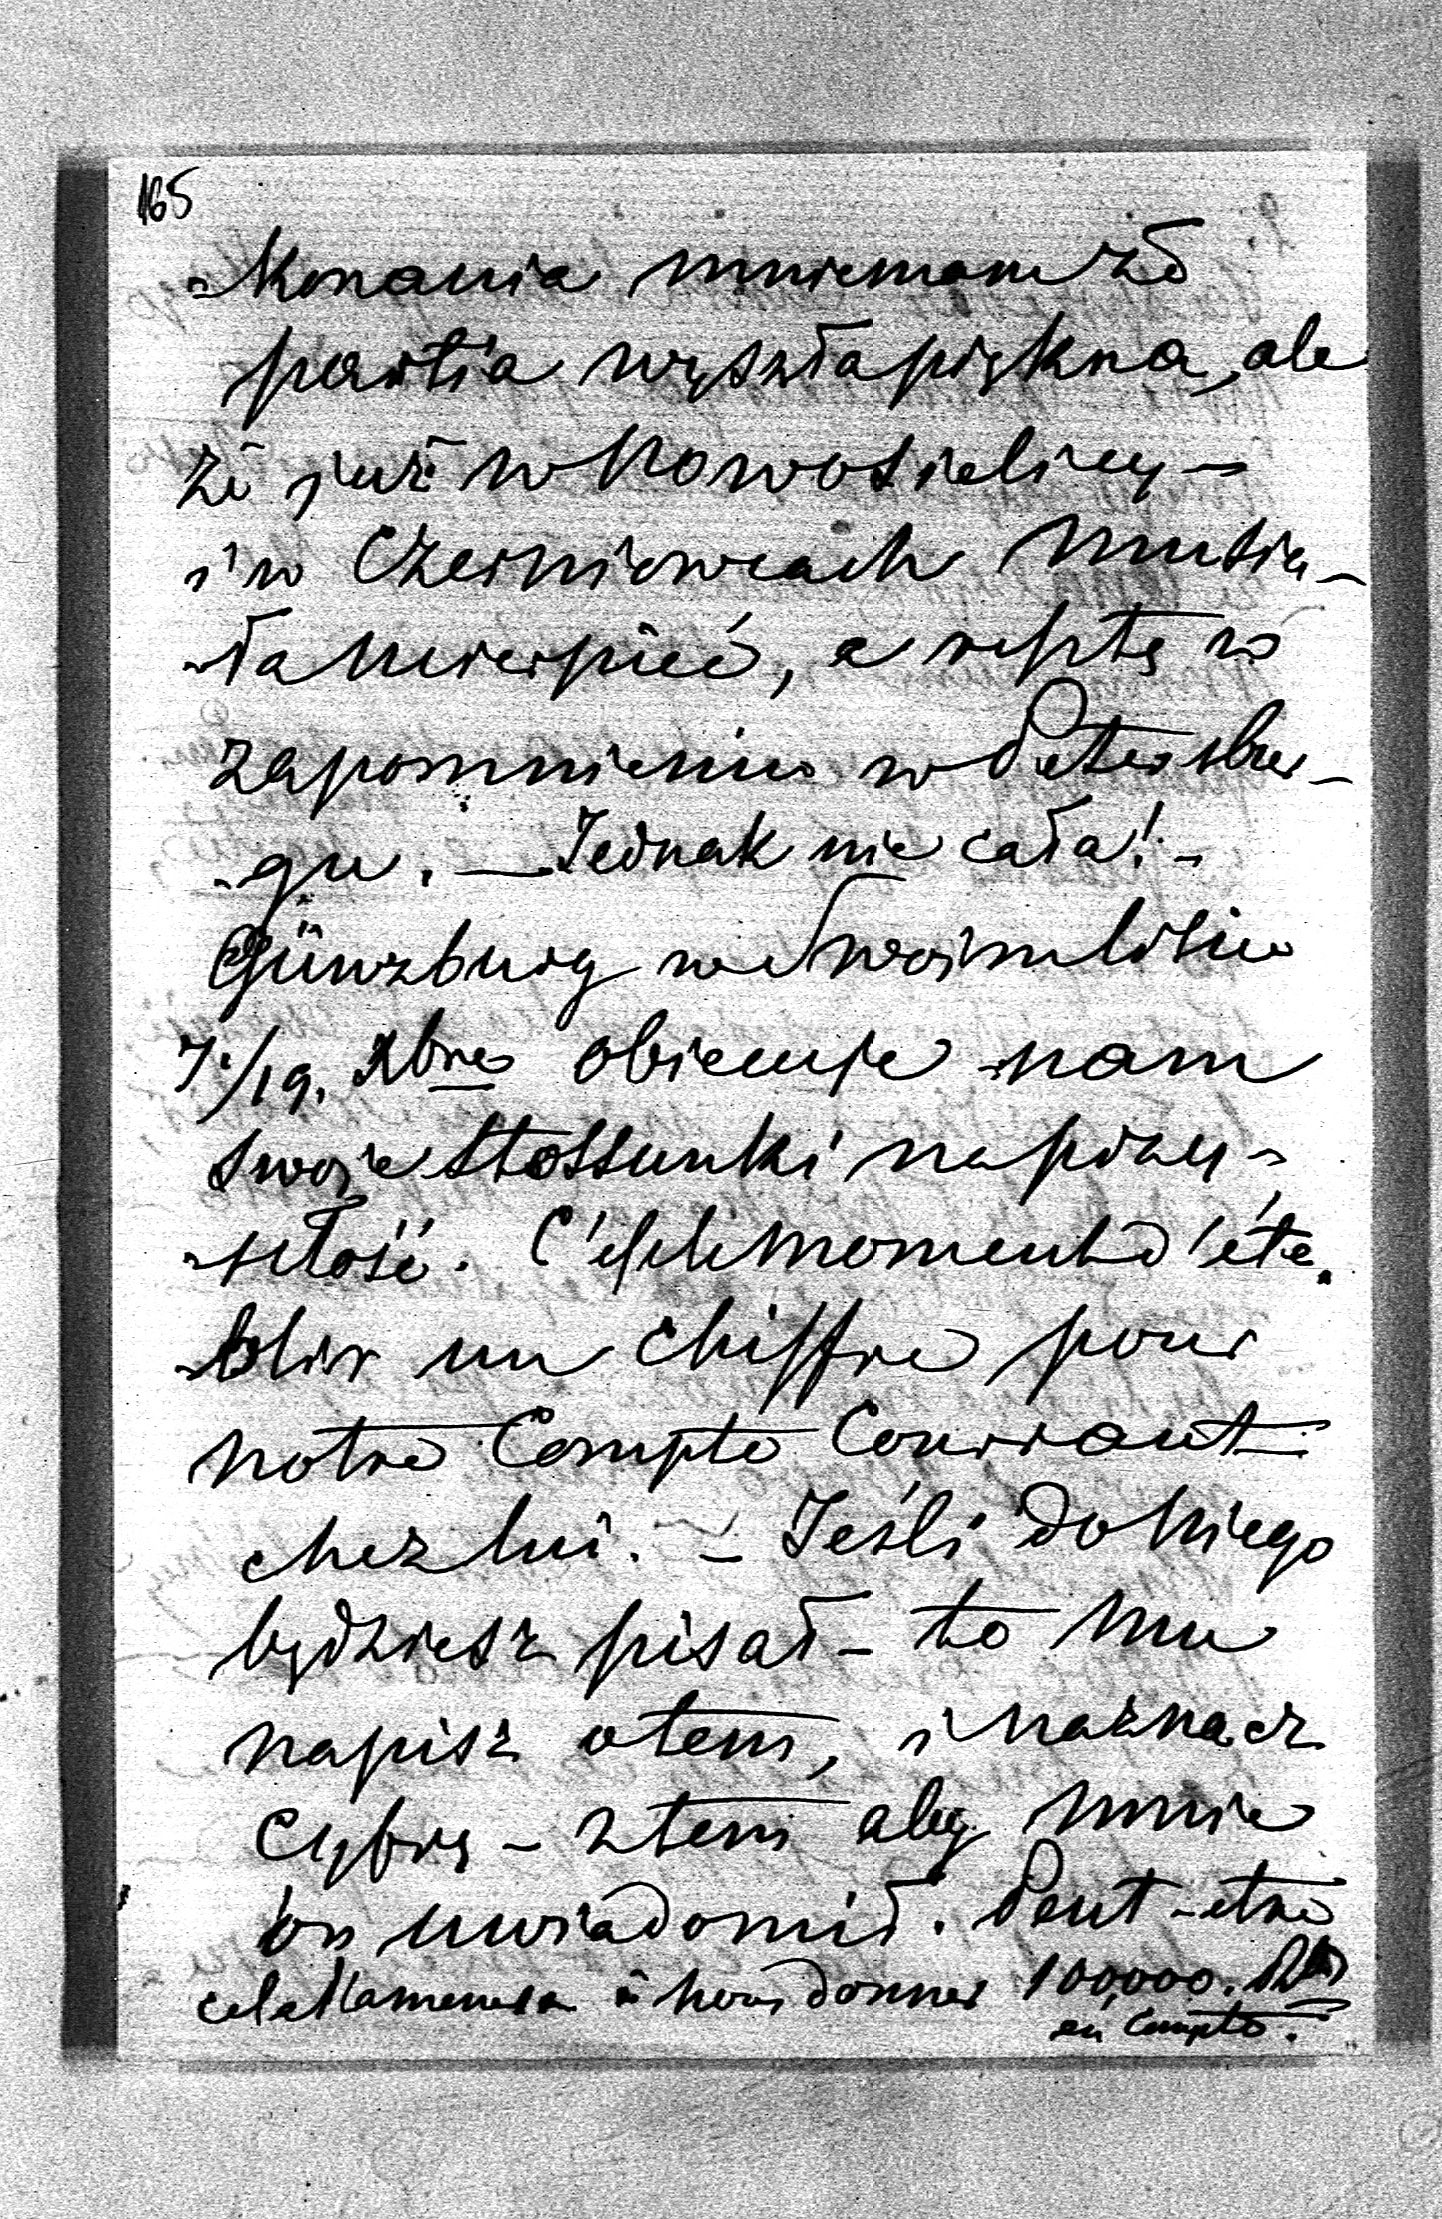 165
-konania mniemam że
partia wyszła piękna, ale
że już w Nowosielicy -
i w Czerniowcach musia-
-ła ucierpieć, a resztę w
zapomnieniu w Petersbur-
-gu. — Jednak nie cała! -
Günzburg w swoim liście
7./19. Xbre obiecuje nam
swoje stossunki na przy-
-szłość. C'est le moment d'éta-
-blir un chiffre pour
notre Compte Courrant
chez lui. - Jeśli do niego
będziesz pisał - to mu
napisz o tem, i naznacz
cyfrę - z tem aby mnie
on uwiadomił. Peut-etre
cela l'amenera à nous donner 100,000. Rbs
en Compte.